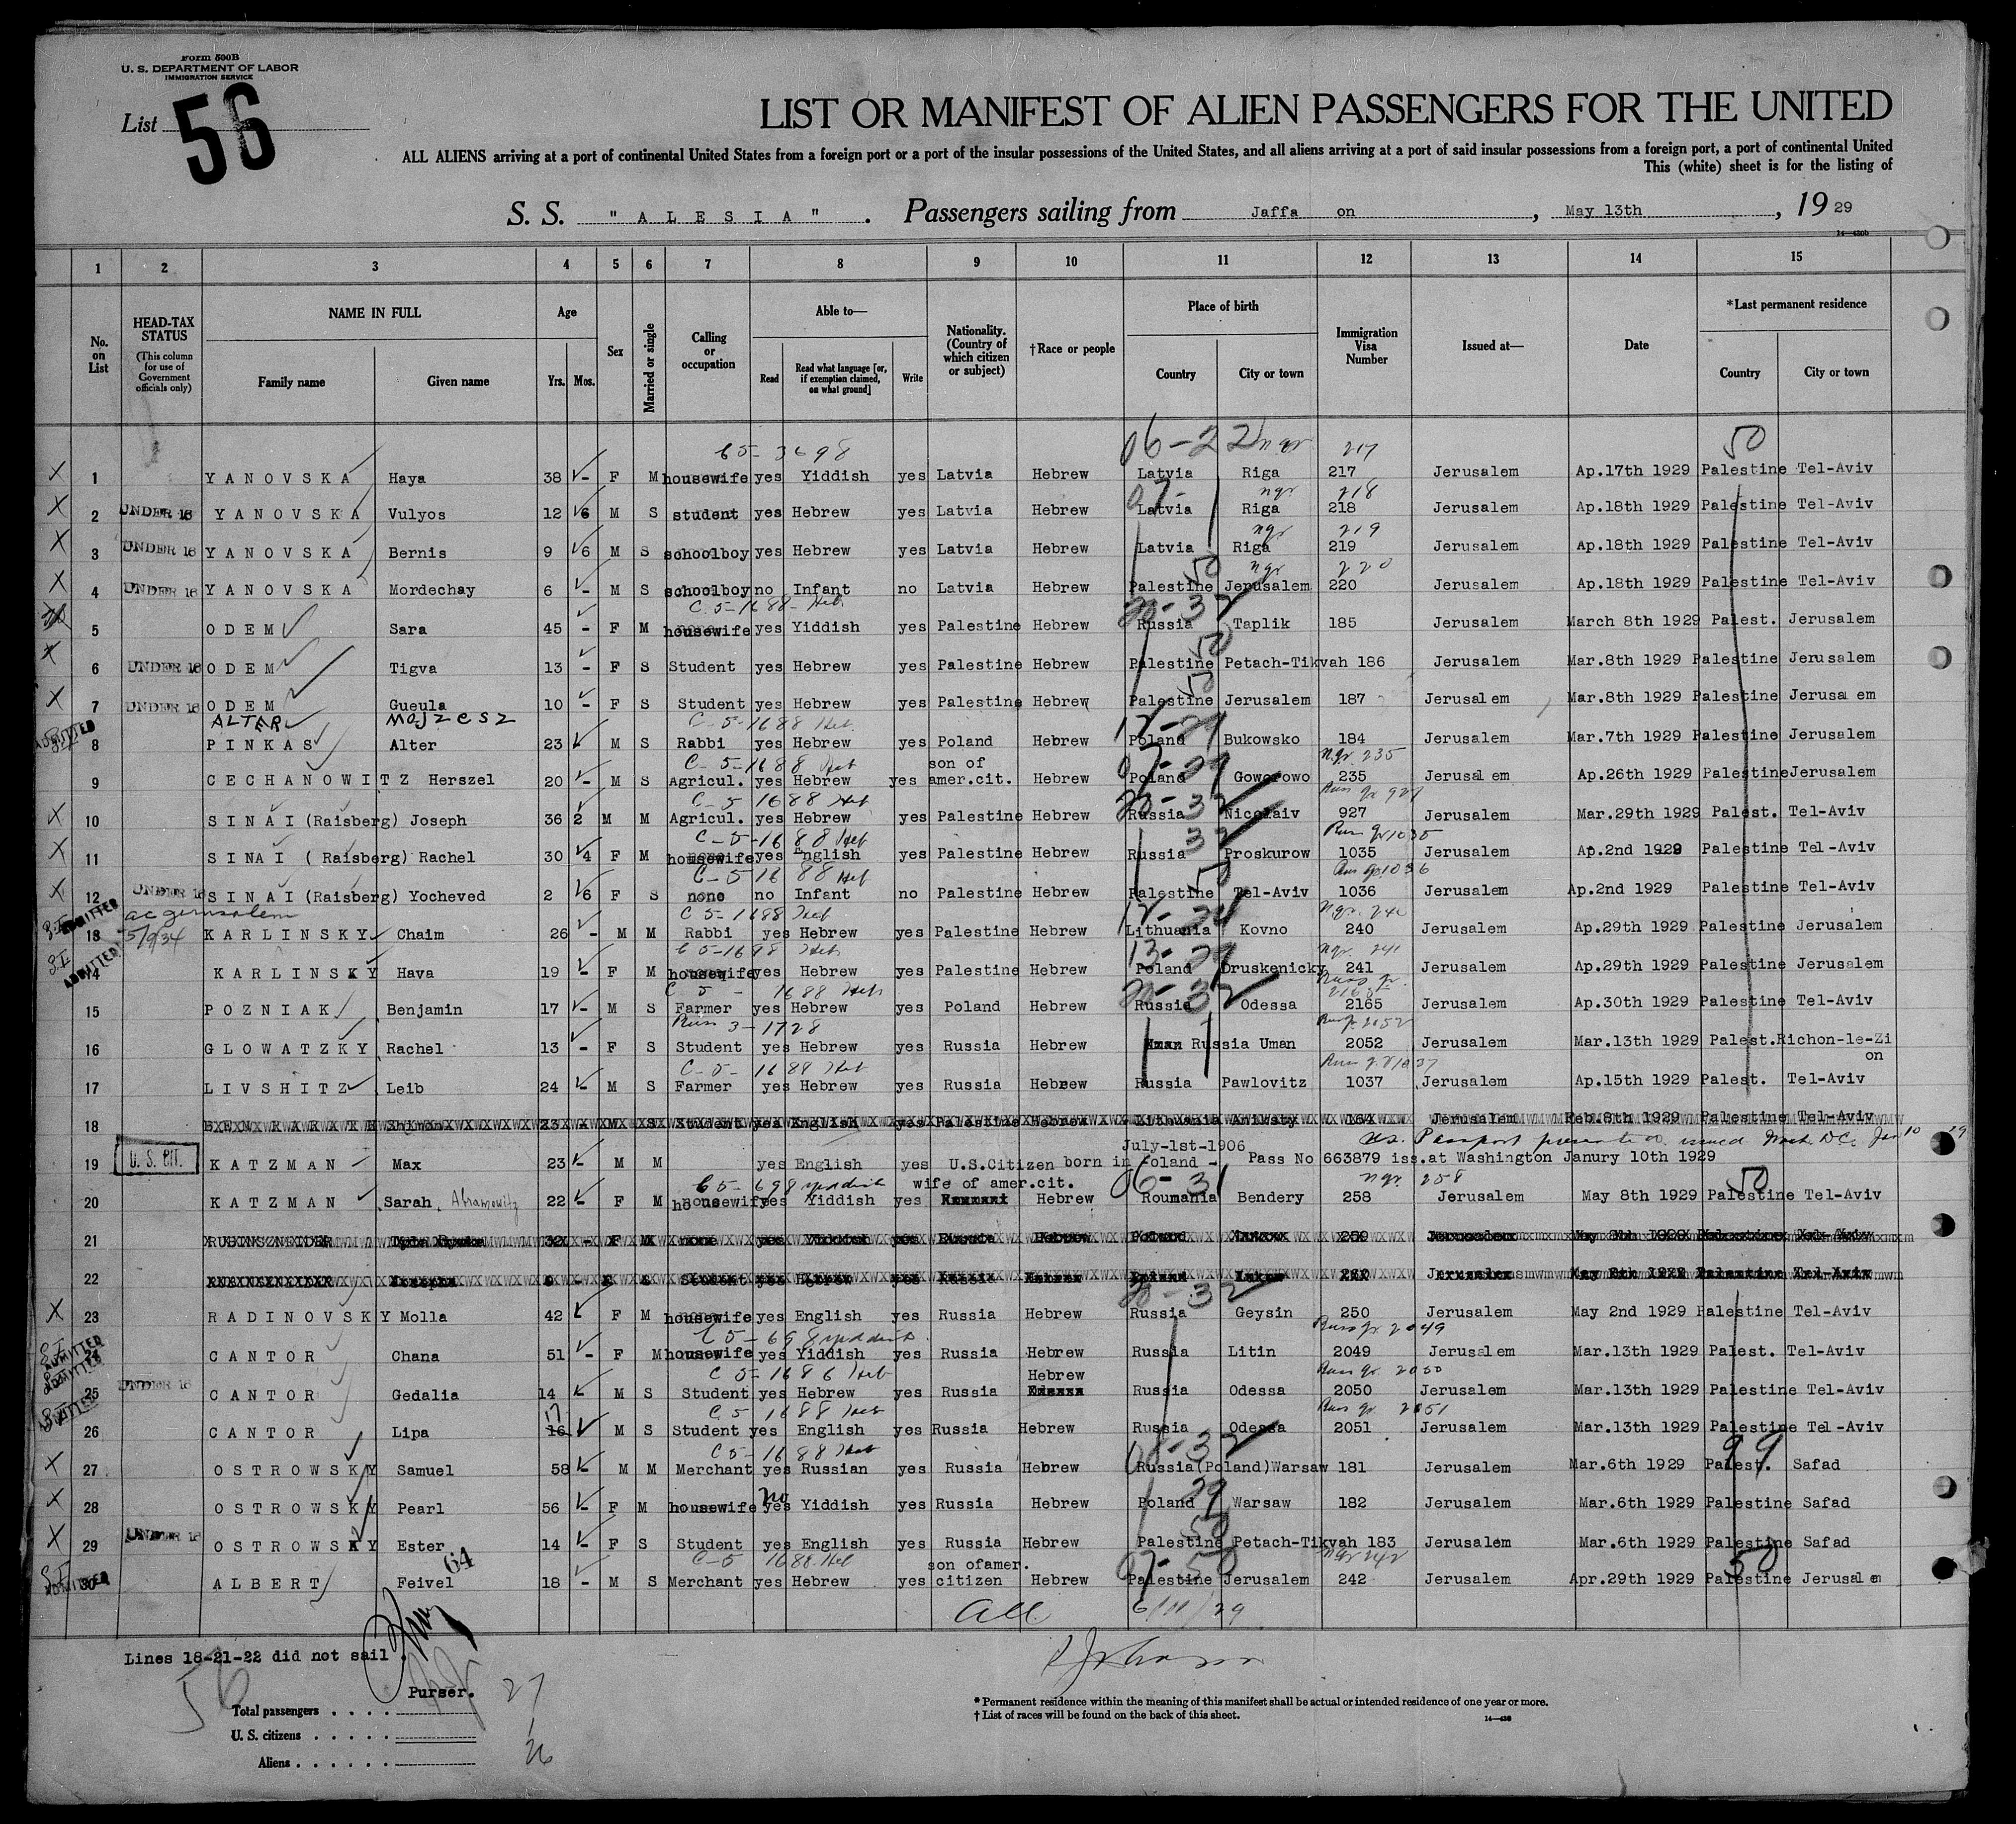 Form 500B
U. S. DEPARTMENT OF LABOR
IMMIGRATION SERVICE
List 56
LIST OR MANIFEST OF ALIEN PASSENGERS FOR THE UNITED
ALL ALIENS arriving at a port of continental United States from a foreign port or a port of the insular possessions of the United States, and all aliens arriving at a port of said insular possessions from a foreign port, a port of continental United
This (white) sheet is for the listing of
S. S. "ALESIA". Passengers sailing from Jaffa on, May 13th, 19 29
14—430b
1 2 3 4 5 6 7 8 9 10 11 12 13 14 15
No. on List
HEAD-TAX STATUS (This column for use of Government officials only)
NAME IN FULL Family name Given name
Age Yrs. Mos.
Sex
Married or single
Calling or occupation
Able to— Read Read what language [or, if exemption claimed, on what ground] Write
Nationality. (Country of which citizen or subject)
†Race or people
Place of birth Country City or town
Immigration Visa Number
Issued at—
Date
*Last permanent residence Country City or town
06-22 ngr 217 50
X 1 YANOVSKA Haya 38 - F M housewife yes Yiddish yes Latvia Hebrew Latvia Riga 217 Jerusalem Ap.17th 1929 Palestine Tel-Aviv
ngr 218
X 2 UNDER 16 YANOVSKA Vulyos 12 6 M S student yes Hebrew yes Latvia Hebrew Latvia Riga 218 Jerusalem Ap.18th 1929 Palestine Tel-Aviv
ngr 219
X 3 UNDER 16 YANOVSKA Bernis 9 6 M S schoolboy yes Hebrew yes Latvia Hebrew Latvia Riga 219 Jerusalem Ap.18th 1929 Palestine Tel-Aviv
50 ngr 220
X 4 UNDER 16 YANOVSKA Mordechay 6 - M S schoolboy no Infant no Latvia Hebrew Palestine Jerusalem 220 Jerusalem Ap.18th 1929 Palestine Tel-Aviv
C-5-1688-Heb
5 ODEM Sara 45 - F M housewife yes Yiddish yes Palestine Hebrew Russia Taplik 185 Jerusalem March 8th 1929 Palest. Jerusalem
50
X 6 UNDER 16 ODEM Tigva 13 - F S Student yes Hebrew yes Palestine Hebrew Palestine Petach-Tikvah 186 Jerusalem Mar.8th 1929 Palestine Jerusalem
50
X 7 UNDER 16 ODEM Gueula 10 - F S Student yes Hebrew yes Palestine Hebrew Palestine Jerusalem 187 Jerusalem Mar.8th 1929 Palestine Jerusalem
ALTER MOJZESZ C-5-1688 Heb.
ADMITTED 8 PINKAS Alter 23 - M S Rabbi yes Hebrew yes Poland Hebrew Poland Bukowsko 184 Jerusalem Mar.7th 1929 Palestine Jerusalem
C-5-1688 Heb son of ngr. 235
9 CECHANOWITZ Herszel 20 - M S Agricul. yes Hebrew yes amer.cit. Hebrew Poland Goworowo 235 Jerusalem Ap.26th 1929 Palestine Jerusalem
C-5 1688 Heb 20-32 Russ gr 927
X 10 SINAI (Raisberg) Joseph 36 2 M M Agricul. yes Hebrew yes Palestine Hebrew Russia Nicolaiv 927 Jerusalem Mar.29th 1929 Palest. Tel-Aviv
C-5-1688 Heb 32 Russ gr 1035
X 11 SINAI (Raisberg) Rachel 30 4 F M housewife yes English yes Palestine Hebrew Russia Proskurow 1035 Jerusalem Ap.2nd 1929 Palestine Tel-Aviv
C-5 1688 Heb 50 Russ gr 1036
X 12 UNDER 16 SINAI (Raisberg) Yocheved 2 6 F S none no Infant no Palestine Hebrew Palestine Tel-Aviv 1036 Jerusalem Ap.2nd 1929 Palestine Tel-Aviv
ac Jerusalem C 5-1688 Heb ngr. 240
S.I. ADMITTED 13 5/9/34 KARLINSKY Chaim 26 - M M Rabbi yes Hebrew yes Palestine Hebrew Lithuania Kovno 240 Jerusalem Ap.29th 1929 Palestine Jerusalem
C 5-1698 Heb 13-29 ngr. 241
S.I. ADMITTED 14 KARLINSKY Hava 19 - F M housewife yes Hebrew yes Palestine Hebrew Poland Druskenicky 241 Jerusalem Ap.29th 1929 Palestine Jerusalem
C 5 - 1688 Heb 20-32 Russ gr. 2165
15 POZNIAK Benjamin 17 - M S Farmer yes Hebrew yes Poland Hebrew Russia Odessa 2165 Jerusalem Ap.30th 1929 Palestine Tel-Aviv
Russ 3-1728 Russ gr 2052
16 GLOWATZKY Rachel 13 - F S Student yes Hebrew yes Russia Hebrew Russia Uman 2052 Jerusalem Mar.13th 1929 Palest. Richon-le-Zi
on
C-5- 1688 Heb Russ gr 1037
17 LIVSHITZ Leib 24 - M S Farmer yes Hebrew yes Russia Hebrew Russia Pawlovitz 1037 Jerusalem Ap.15th 1929 Palest. Tel-Aviv
18 Shimon 23 - M S Student yes English yes Palestine Hebrew Lithuania 164 Jerusalem Feb.8th 1929 Palestine Tel-Aviv
July-1st-1906 U.S. Passport presented issued Wash DC. Jan 10 29
U. S. CIT. 19 KATZMAN Max 23 - M M yes English yes U.S.Citizen born in Poland - Pass No 663879 iss.at Washington Janury 10th 1929
C5-698 Yiddish wife of amer.cit. 06-31 ngr. 258 50
20 KATZMAN Sarah, Abramowitz 22 - F M housewife yes Yiddish yes Hebrew Roumania Bendery 258 Jerusalem May 8th 1929 Palestine Tel-Aviv
21 32 - F M none yes Yiddish yes Russia Hebrew Poland 259 Jerusalem May 8th 1929 Palestine Tel-Aviv
22 F S Student yes Hebrew yes Russia Hebrew Poland Jerusalem May 8th 1929 Palestine Tel-Aviv
20-32
X 23 RADINOVSKY Molla 42 - F M housewife yes English yes Russia Hebrew Russia Geysin 250 Jerusalem May 2nd 1929 Palestine Tel-Aviv
C 5-698 Yiddish Russ gr 2049
S.I. ADMITTED 24 CANTOR Chana 51 - F M housewife yes Yiddish yes Russia Hebrew Russia Litin 2049 Jerusalem Mar.13th 1929 Palest. Tel-Aviv
C 5-1686 Heb Hebrew Russ gr 2050
S.I. ADMITTED 25 UNDER 16 CANTOR Gedalia 14 - M S Student yes Hebrew yes Russia Russia Odessa 2050 Jerusalem Mar.13th 1929 Palestine Tel-Aviv
17 C.5 1688 Heb Russ gr. 2051
S.I. ADMITTED 26 CANTOR Lipa 16 M S Student yes English yes Russia Hebrew Russia Odessa 2051 Jerusalem Mar.13th 1929 Palestine Tel-Aviv
C 5-1688 Heb 08-32 99
X 27 OSTROWSKY Samuel 58 - M M Merchant yes Russian yes Russia Hebrew Russia(Poland) Warsaw 181 Jerusalem Mar.6th 1929 Palest. Safad
no 29
X 28 OSTROWSKY Pearl 56 - F M housewife yes Yiddish yes Russia Hebrew Poland Warsaw 182 Jerusalem Mar.6th 1929 Palestine Safad
50
X 29 UNDER 16 OSTROWSKY Ester 14 - F S Student yes English yes Russia Hebrew Palestine Petach-Tikvah 183 Jerusalem Mar.6th 1929 Palestine Safad
64 C-5 1688 Heb son ofamer. 07-50 ngr 242 50
S.I. ADMITTED 30 ALBERT Feivel 18 - M S Merchant yes Hebrew yes citizen Hebrew Palestine Jerusalem 242 Jerusalem Apr.29th 1929 Palestine Jerusalem
All 6/11/29
Lines 18-21-22 did not sail.
56
Purser. 27
Total passengers
U. S. citizens 1
Aliens 26
* Permanent residence within the meaning of this manifest shall be actual or intended residence of one year or more.
† List of races will be found on the back of this sheet.
14—430